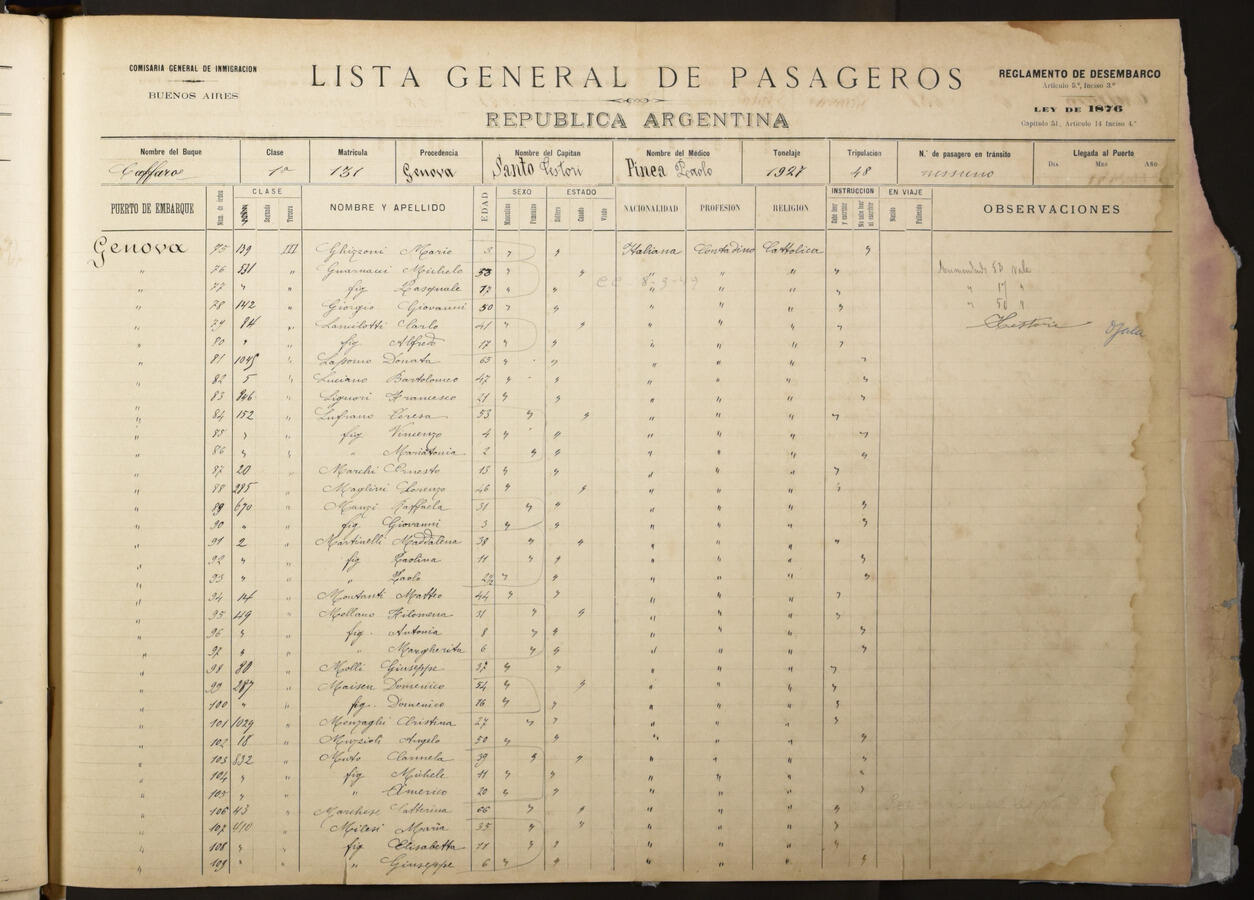 COMISARIA GENERAL DE INMIGRACION
BUENOS AIRES
LISTA GENERAL DE PASAGEROS
REPUBLICA ARGENTINA
REGLAMENTO DE DESEMBARCO
Artículo 5.º, Inciso 3.º
LEY DE 1876
Capítulo 51, Artículo 14 Inciso 4.º
Nombre del Buque Clase Matrícula Procedencia Nombre del Capitan Nombre del Médico Tonelaje Tripulación N.º de pasagero en tránsito Llegada al Puerto
Dia Mes Año
Caffaro 1ª 131 Genova Santo Pinea Paolo 1927 48 nessuno
PUERTO DE EMBARQUE Núm. de órden CLASE Segunda Tercera NOMBRE Y APELLIDO EDAD SEXO Masculino Femenino ESTADO Soltero Casado Viudo NACIONALIDAD PROFESION RELIGION INSTRUCCION Sabe leer y escribir No sabe leer ni escribir EN VIAJE Nacido Fallecido OBSERVACIONES
Genova 75 139 III Ghizzoni Mario 3 " " Italiana Contadino Cattolica "
" 76 531 " Guarnacci Michele 53 " " " " " "
" 77 " " fig Pasquale 17 " " " " " " CC 8-3-49 " 17 "
" 78 142 " Giorgio Giovanni 50 " " " " " " " 50 "
" 79 84 " Lancilotti Carlo 41 " " " " " "
" 80 " " fig Alfredo 17 " " " " " "
" 81 1045 " Donata 63 " " " " " "
" 82 5 " Luciano Bartolomeo 47 " " " " " "
" 83 846 " Liguori Francesco 21 " " " " " "
" 84 152 " Lufrano Teresa 53 " " " " " "
" 85 " " fig Vincenzo 4 " " " " " "
" 86 " " " Mariatonia 2 " " " " " "
" 87 20 " Marchi Ernesto 13 " " " " " "
" 88 285 " Maglivi Lorenzo 46 " " " " " "
" 89 670 " Manzi Raffaela 31 " " " " " "
" 90 " " fig Giovanni 3 " " " " " "
" 91 2 " Martinelli Maddalena 38 " " " " " "
" 92 " " fig Paolina 11 " " " " " "
" 93 " " " Paolo 2½ " " " " " "
" 94 14 " Montanti Matteo 44 " " " " " "
" 95 149 " Mollano Filomena 31 " " " " " "
" 96 " " fig. Antonia 8 " " " " " "
" 97 " " " Margherita 6 " " " " " "
" 98 80 " Molli Giuseppe 32 " " " " " "
" 99 287 " Maisen Domenico 54 " " " " " "
" 100 " " fig. Domenico 16 " " " " " "
" 101 1029 " Monzaghi Cristina 27 " " " " " "
" 102 18 " Muzioli Angelo 50 " " " " " "
" 103 832 " Muto Carmela 39 " " " " " "
" 104 " " fig Michele 11 " " " " " "
" 105 " " " Americo 20 " " " " " "
" 106 43 " Marchese Catterina 66 " " " " " "
" 107 410 " Milesi Maria 35 " " " " " "
" 108 " " fig Elisabetta 11 " " " " " "
" 109 " " " Giuseppe 6 " " " " " "